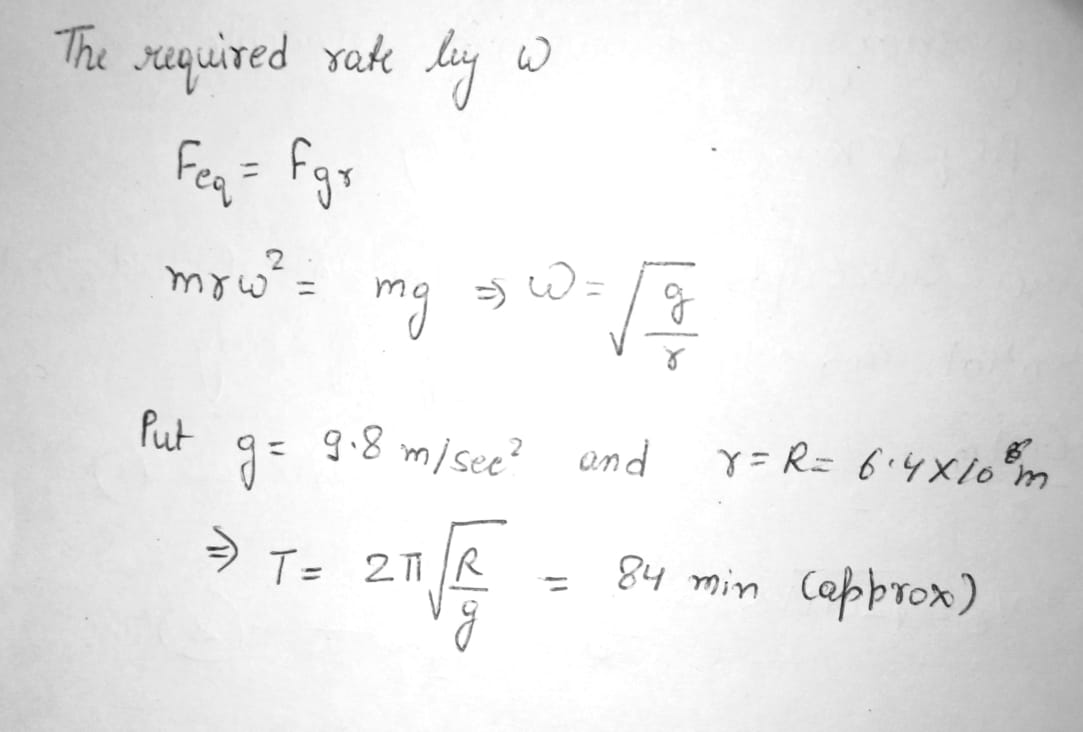 The required rate by ω
Feq = Fgr
mrω² = mg ⇒ ω = √(g/r)
Put g = 9.8 m/sec² and r = R = 6.4 × 10⁶ m
⇒ T = 2π √(R/g) = 84 min (approx)